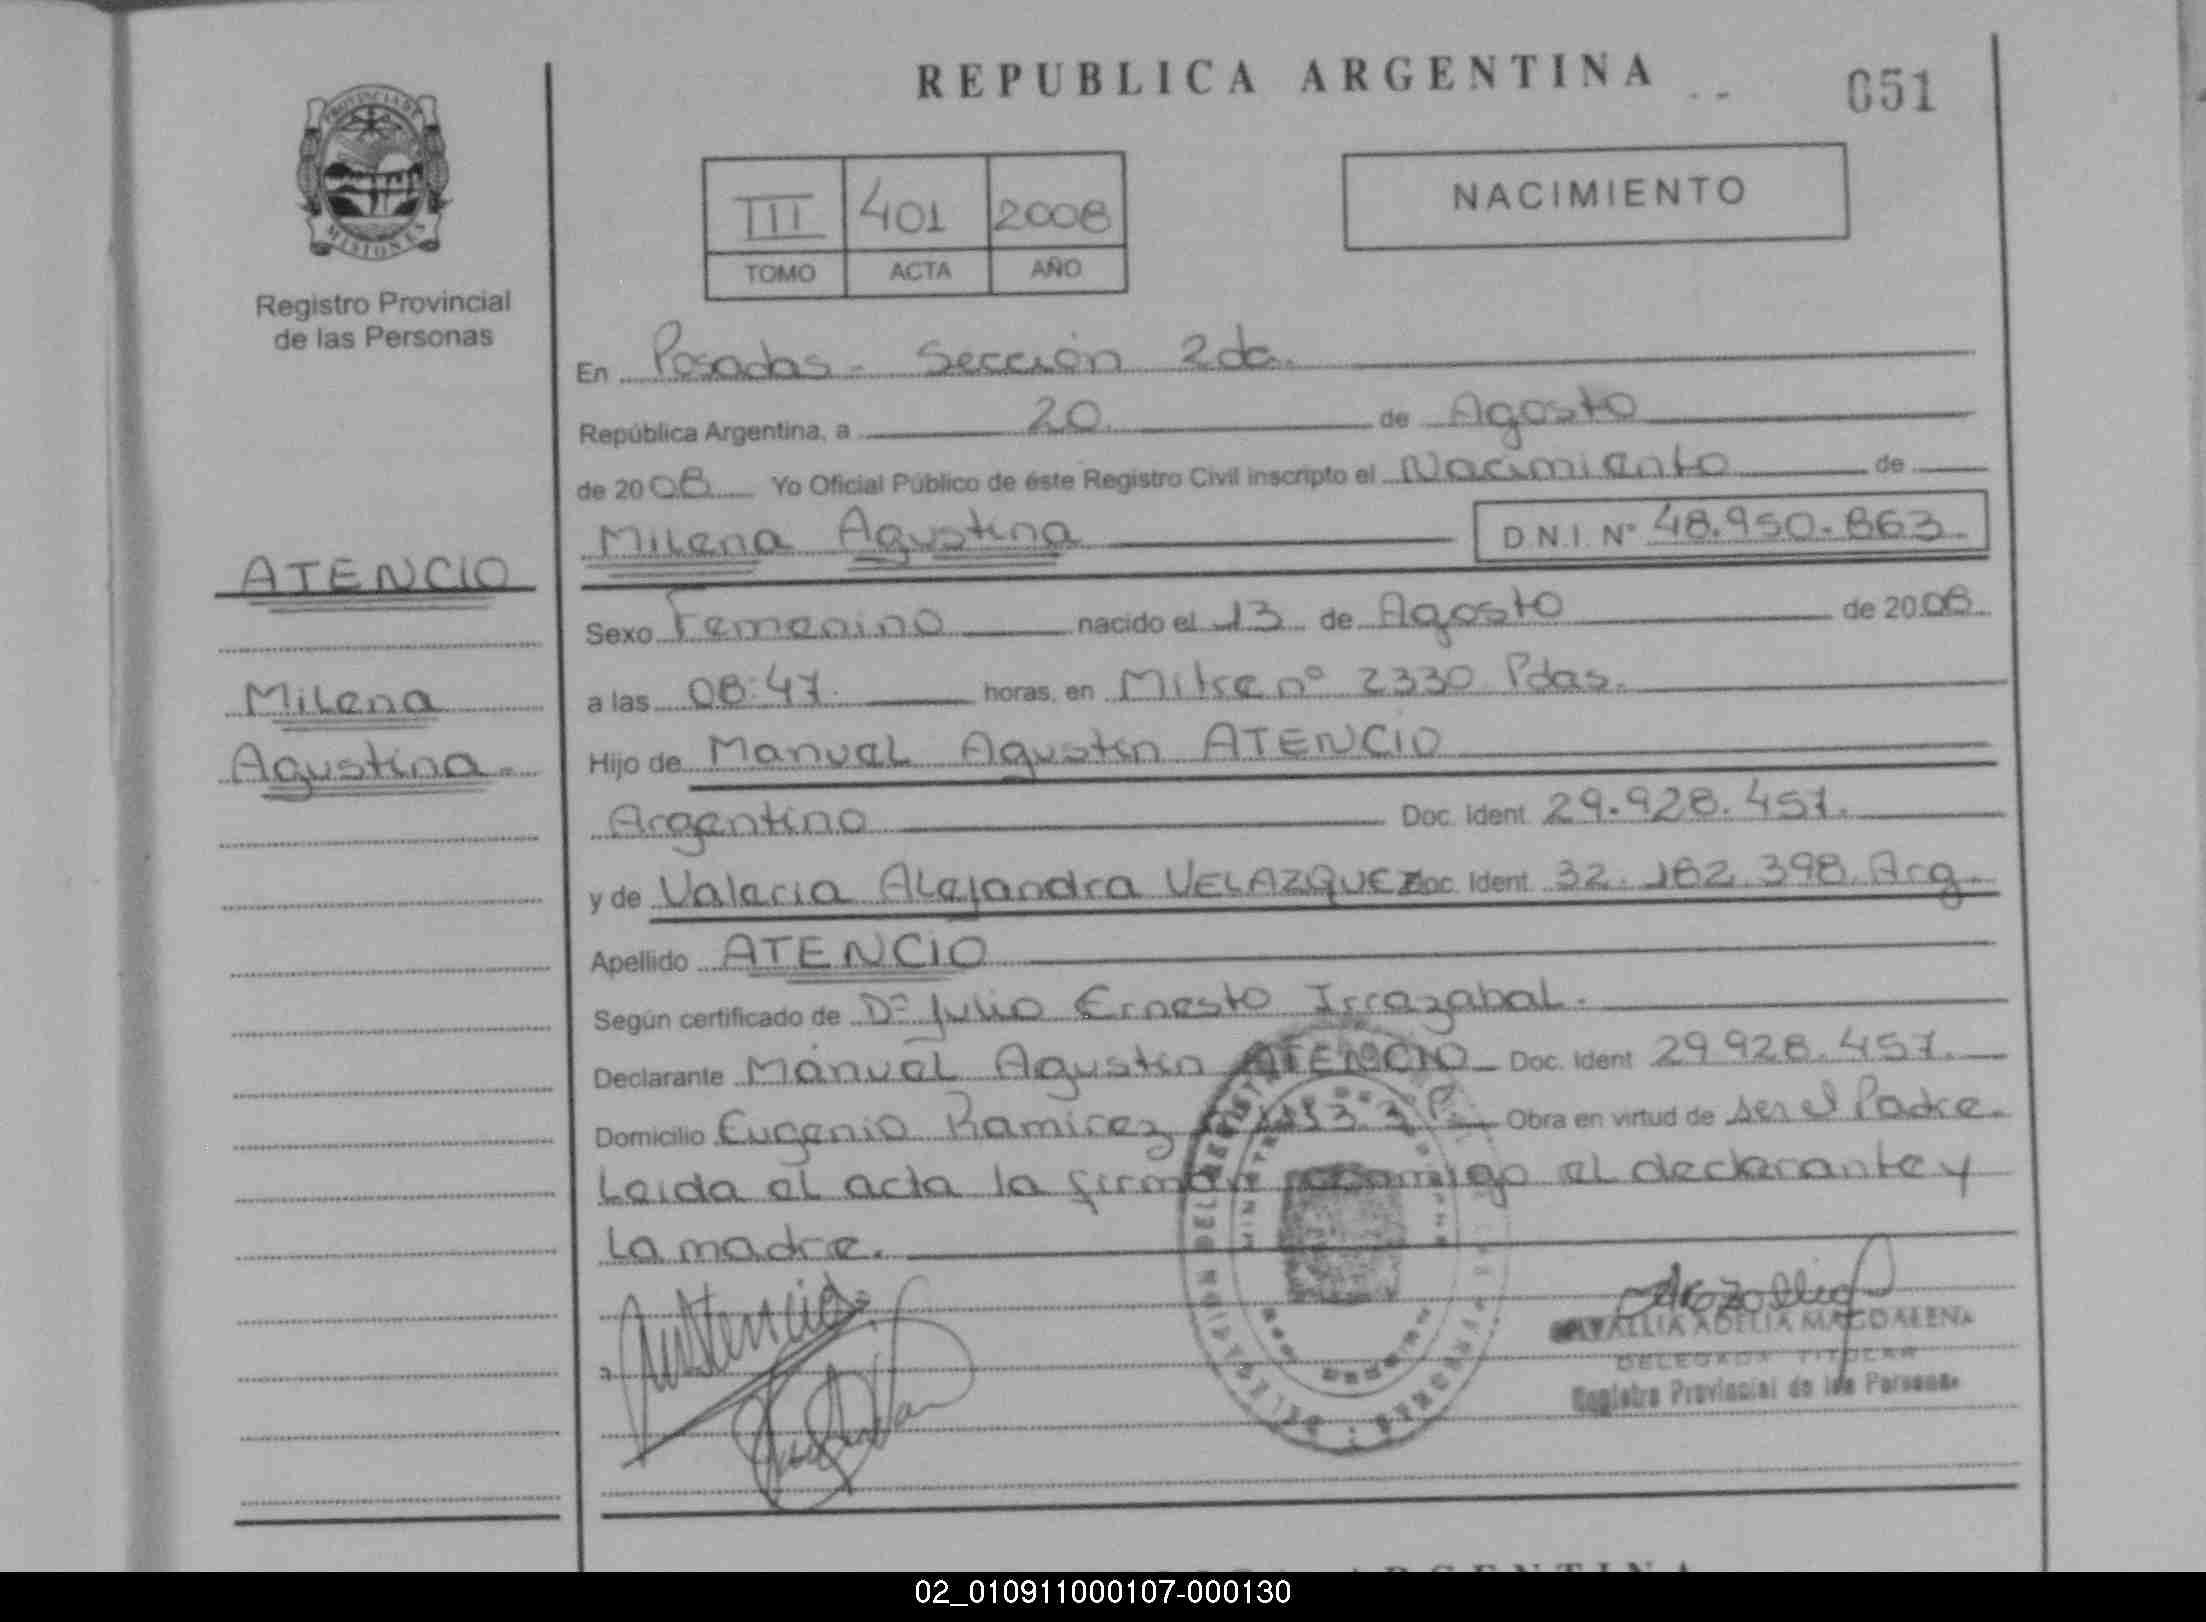 REPUBLICA ARGENTINA
051
PROVINCIA DE
MISIONES
Registro Provincial
de las Personas
III 401 2008
TOMO ACTA AÑO
NACIMIENTO
En Posadas - Sección 2da.
República Argentina, a 20 de Agosto
de 2008 Yo Oficial Público de éste Registro Civil inscripto el Nacimiento de
Milena Agustina D.N.I. Nº 48.950.863.
ATENCIO
Milena
Agustina.
Sexo Femenino nacido el 13 de Agosto de 2008
a las 08:47. horas, en Mitre nº 2330 Pdas.
Hijo de Manuel Agustin ATENCIO
Argentino Doc. Ident. 29.928.457.
y de Valeria Alejandra VELAZQUEZ Doc. Ident. 32.182.398. Arg.
Apellido ATENCIO
Según certificado de Dr Julio Ernesto Irrazabal.
Declarante Manuel Agustin ATENCIO Doc. Ident 29 928.457.
Domicilio Eugenio Ramirez Obra en virtud de ser el Padre.
Leida el acta la firman conmigo el declarante y
La madre.
ADELIA MAGDALENA
DELEGADA TITULAR
Registro Provincial de las Personas
02_010911000107-000130